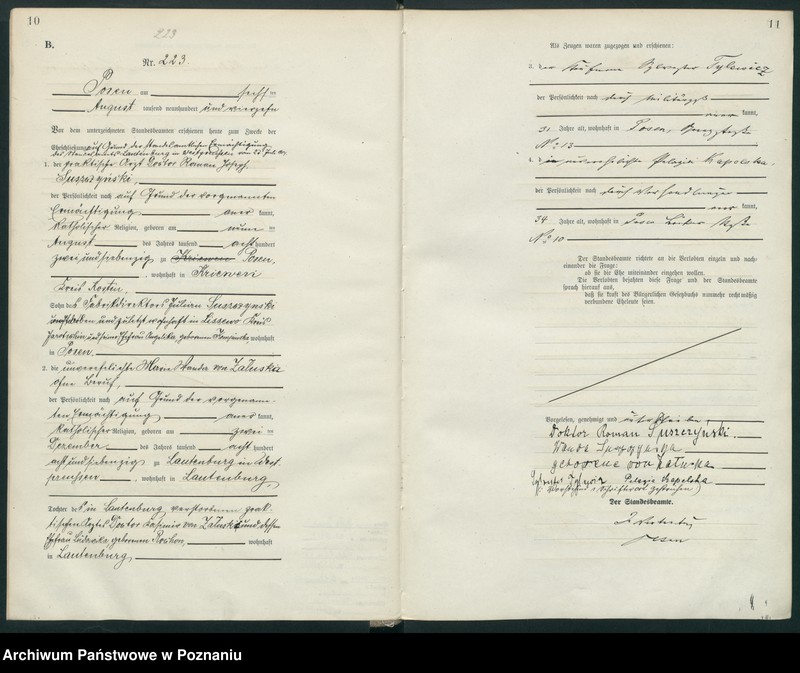 10
223
B.
Nr. 223.
Posen am sechs
August tausend neunhundert und vierzehn
Vor dem unterzeichneten Standesbeamten erschienen heute zum Zwecke der
Eheschließung auf Grund der standesamtlichen Ermächtigung
des Standesamts Lautenburg in Westpreußen vom
1. der praktischer Arzt Doctor Roman Joseph
Suszczyński,
der Persönlichkeit nach auf Grund der vorgenannten
Ermächtigung, kannt,
katholischer Religion, geboren am neun
August des Jahres tausend acht hundert
zwei und siebenzig zu Kriewen Posen,
, wohnhaft in Kriewen
Kreis Kosten,
Sohn des Fabrikdirektors Julian Suszczynski
und zuletzt wohnhaft in Kreis
Jarotschin und seiner Ehefrau Angelika, geborenen wohnhaft
in Posen,
2. die unverehelichte Marie Wanda von Zaluska
ohne Beruf,
der Persönlichkeit nach auf Grund der vorgenann-
ten Ermächtigung kannt,
katholischer Religion, geboren am zwei
Dezember des Jahres tausend acht hundert
acht und siebenzig zu Lautenburg in West-
preussen, wohnhaft in Lautenburg,
Tochter des in Lautenburg verstorbenen prak-
tischen Arztes Doctor Casimir von Zaluski und dessen
Ehefrau geborenen wohnhaft
in Lautenburg,
11
Als Zeugen waren zugezogen und erschienen:
3. der Kaufmann Sylvester Tylewicz
der Persönlichkeit nach durch Militärpaß
kannt,
31 Jahre alt, wohnhaft in Posen,
No 13
4. die unverehelichte Pelagia Kapelska,
der Persönlichkeit nach durch
kannt,
34 Jahre alt, wohnhaft in Posen
No 10
Der Standesbeamte richtete an die Verlobten einzeln und nach-
einander die Frage:
ob sie die Ehe miteinander eingehen wollen.
Die Verlobten bejahten diese Frage und der Standesbeamte
sprach hierauf aus,
daß sie kraft des Bürgerlichen Gesetzbuchs nunmehr rechtmäßig
verbundene Eheleute seien.
Vorgelesen, genehmigt und unterschrieben
Doktor Roman Suszczyński.
Wanda Suszczyńska
geborene von Załuska
Pelagia Kapelska
Der Standesbeamte.
In Vertretung
Archiwum Państwowe w Poznaniu